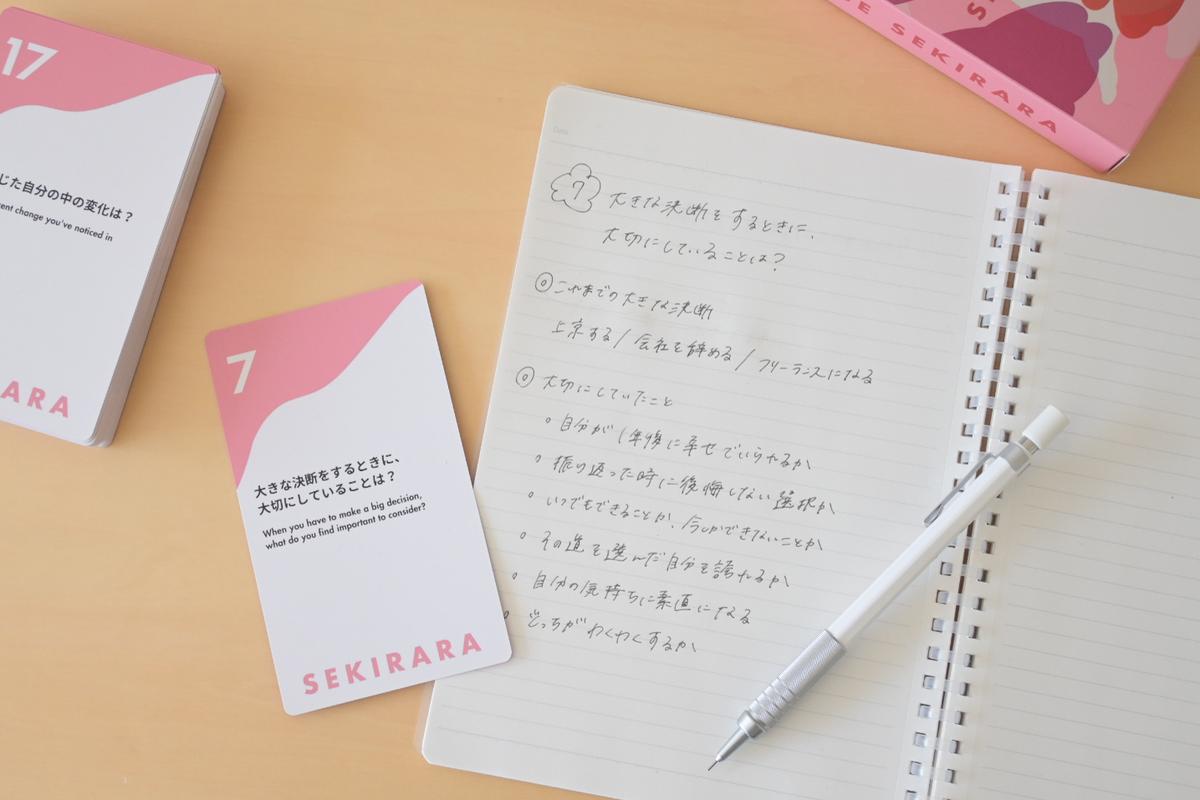 17
じた自分の中の変化は？
ent change you've noticed in
ARA
7
大きな決断をするときに、
大切にしていることは？
When you have to make a big decision,
what do you find important to consider?
SEKIRARA
SEKIRARA
Date
7 大きな決断をするときに、
大切にしていることは？
◎ これまでの大きな決断
上京する / 会社を辞める / フリーランスになる
◎ 大切にしていたこと
・自分が1年後に幸せでいられるか
・振り返った時に後悔しない選択か
・いつでもできることか、今しかできないことか
・その道を選んだ自分を誇れるか
・自分の気持ちに素直になる
・どっちがわくわくするか